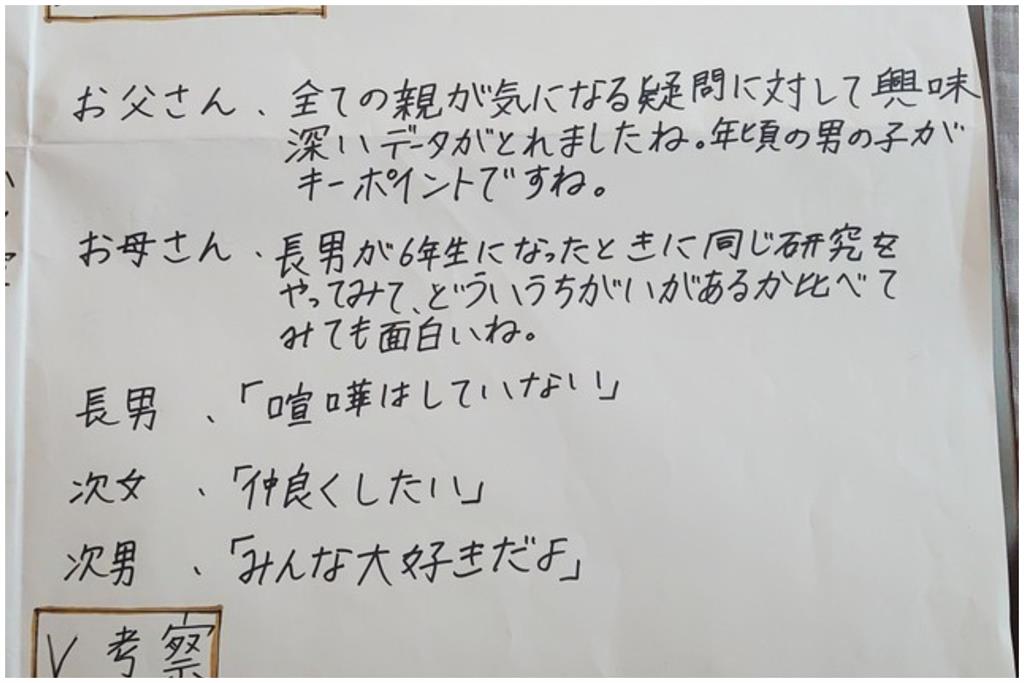 お父さん、全ての親が気になる疑問に対して興味
深いデータがとれましたね。年頃の男の子が
キーポイントですね。
お母さん、長男が6年生になったときに同じ研究を
やってみて、どういうちがいがあるか比べて
みても面白いね。
長男、「喧嘩はしていない」
次女、「仲良くしたい」
次男、「みんな大好きだよ」
V 考察